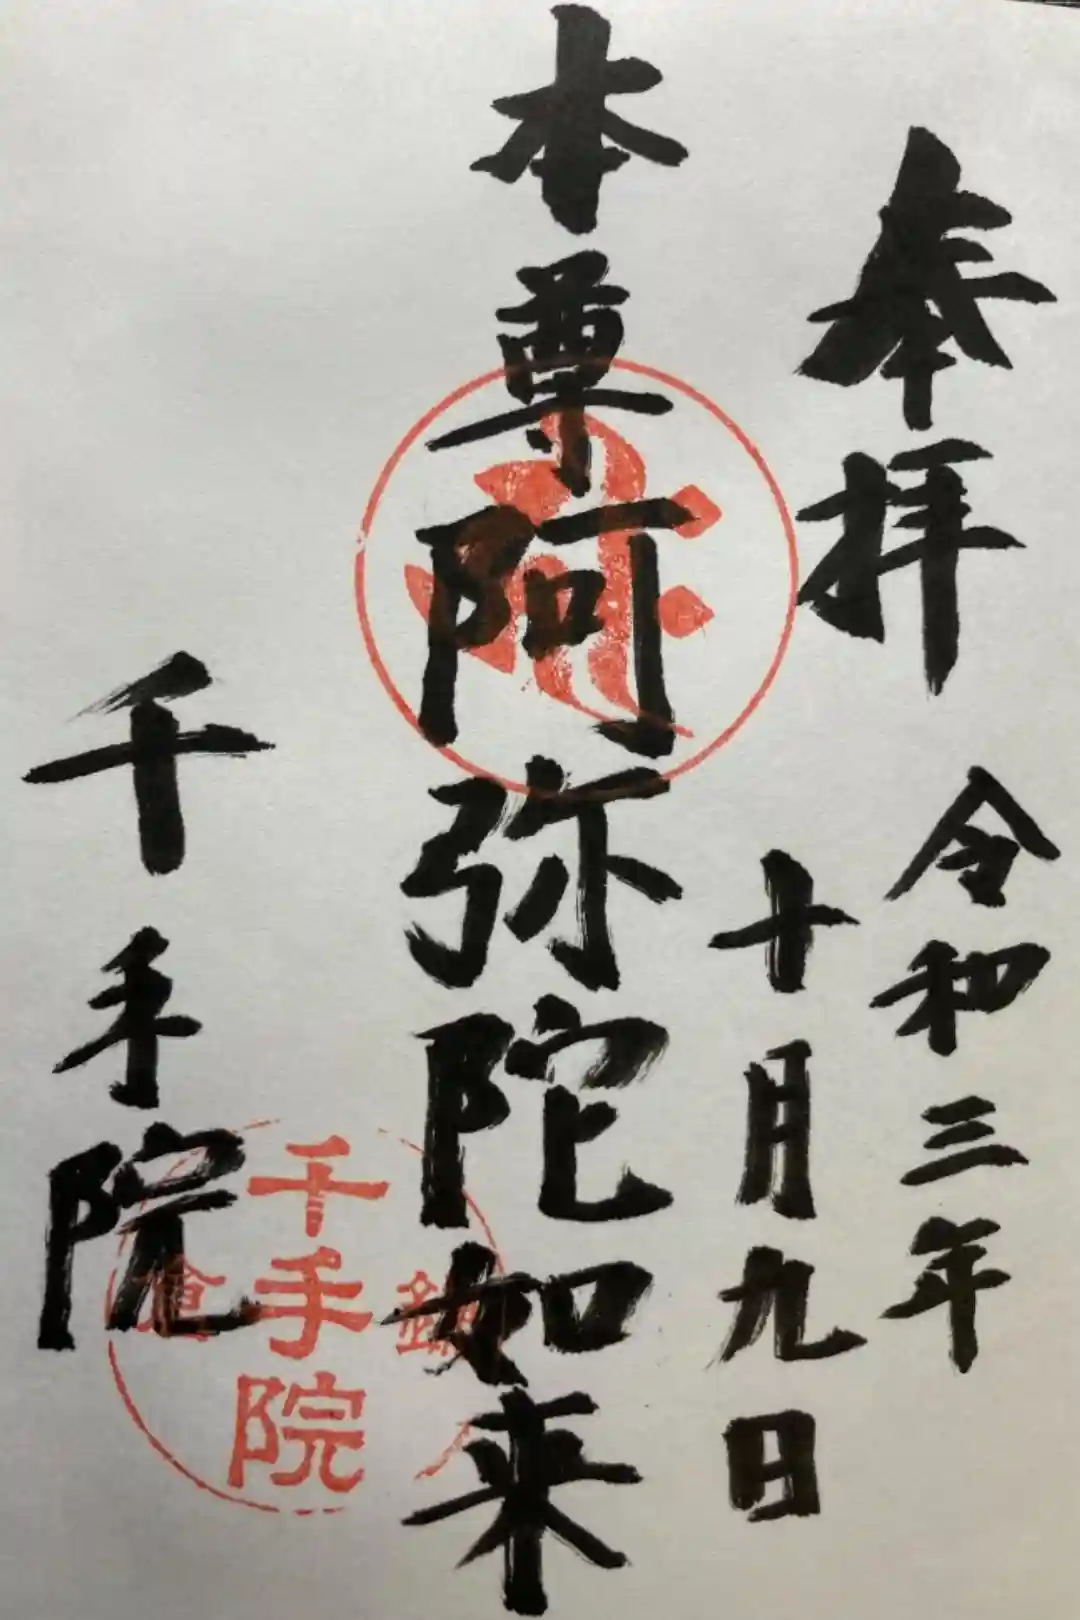 奉拝
令和三年
十月九日
本尊阿弥陀如来
千手院
鎌倉
千手院